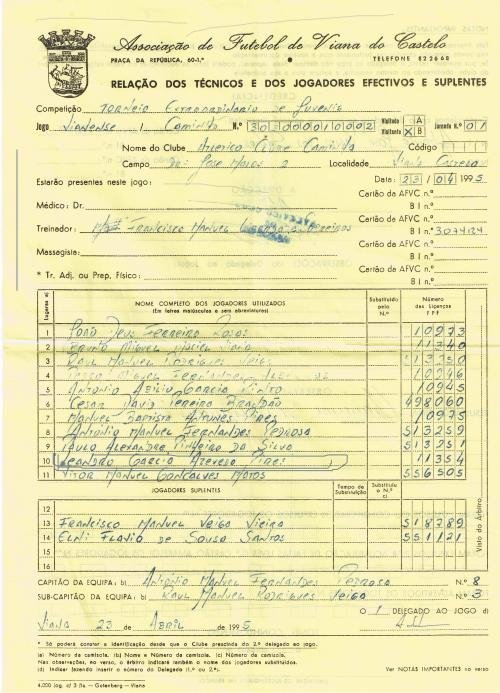 Associação de Futebol de Viana do Castelo
PRAÇA DA REPÚBLICA, 60-1.º • TELEFONE 822668
RELAÇÃO DOS TÉCNICOS E DOS JOGADORES EFECTIVOS E SUPLENTES
Competição TORNEIO EXTRAORDINARIO DE JUVENIS
Jogo VIANENSE / CAMINHA N.º 30300010002 Visitado A Visitante X B Jornada N.º 01
Nome do Clube ATLETICO CLUBE CAMINHA Código
Campo DR. JOSE MATOS 2 Localidade VIANA CASTELO
Estarão presentes neste jogo: Data: 23/04/1995
Cartão da AFVC n.º
Médico: Dr. B I n.º
Cartão da AFVC n.º
Treinador: FRANCISCO MANUEL B I n.º 3074124
Cartão da AFVC n.º
Massagista: B I n.º
Cartão da AFVC n.º
* Tr. Adj. ou Prep. Físico: B I n.º
Lugares a) NOME COMPLETO DOS JOGADORES UTILIZADOS Substituído pelo N.º Número das Licenças F P F
(Em letras maiúsculas e sem abreviaturas)
1 JOÃO DEUS FERREIRO 10973
2 BRUNO MIGUEL MACIEL VIANA 11340
3 RAUL MANUEL RODRIGUES VEIGA 11350
4 PEDRO MIGUEL FERNANDES 10946
5 ANTONIO ABILIO GARCIA PINTO 10945
6 CESAR DAVID PEREIRA BRANDÃO 498060
7 MANUEL BAPTISTA ANTUNES PIRES 10975
8 ANTONIO MANUEL FERNANDES PEDROSA 513259
9 PAULO ALEXANDRE PINHEIRO DA SILVA 513251
10 LEANDRO GARCIA AZEVEDO PIRES 11354
11 VITOR MANUEL GONÇALVES MATOS 556505
JOGADORES SUPLENTES Tempo de Substituição Substituiu o N.º c)
12
13 FRANCISCO MANUEL VEIGA VIEIRA 518789
14 ELNI FLAVIO DE SOUSA SANTOS 551121
15
16
Visto do Árbitro
CAPITÃO DA EQUIPA: b) ANTONIO MANUEL FERNANDES PEDROSA N.º 8
SUB-CAPITÃO DA EQUIPA: b) RAUL MANUEL RODRIGUES VEIGA N.º 3
O 1 DELEGADO AO JOGO d)
VIANA 23 de ABRIL de 1995
* Só poderá constar a identificação desde que o Clube prescinda do 2.º delegado ao jogo.
(a) Número da camisola. (b) Nome e Número da camisola. (c) Número da camisola.
Nas observações, no verso, o árbitro indicará também o nome dos jogadores substituídos.
(d) Indicar fazendo inserir o número do Delegado (1.º ou 2.º).
Ver NOTAS IMPORTANTES no verso
4.000 jog. c/ 3 fls. — Gutenberg — Viana